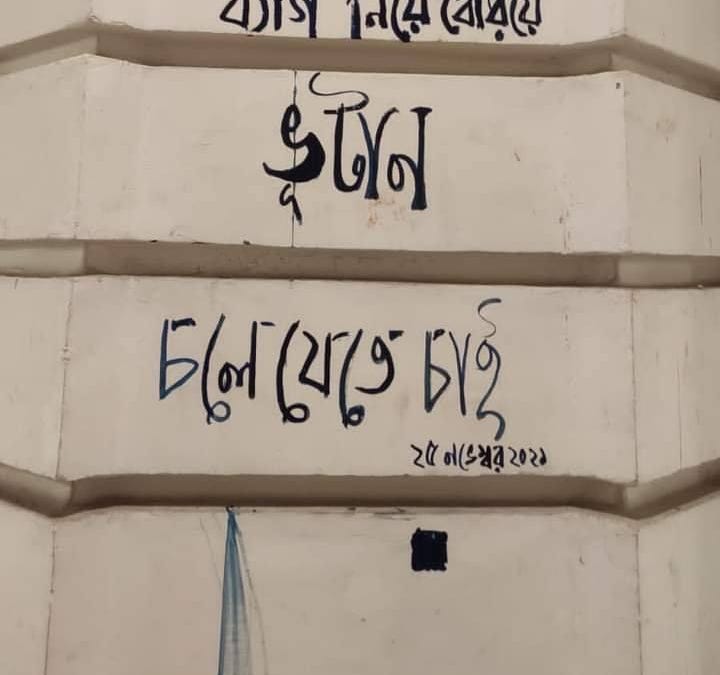 ব্যাগ নিয়ে বেরিয়ে
ভুটান
চলে যেতে চাই
২৫ নভেম্বর ২০২১